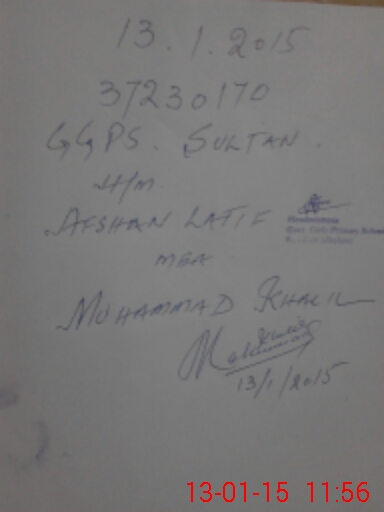 13.1.2015
37230170
GGPS. SULTAN.
H/M.
AFSHAN LATIF
Headmistress
Govt. Girls Primary School
MEA
MUHAMMAD KHALIL
13/1/2015
13-01-15 11:56